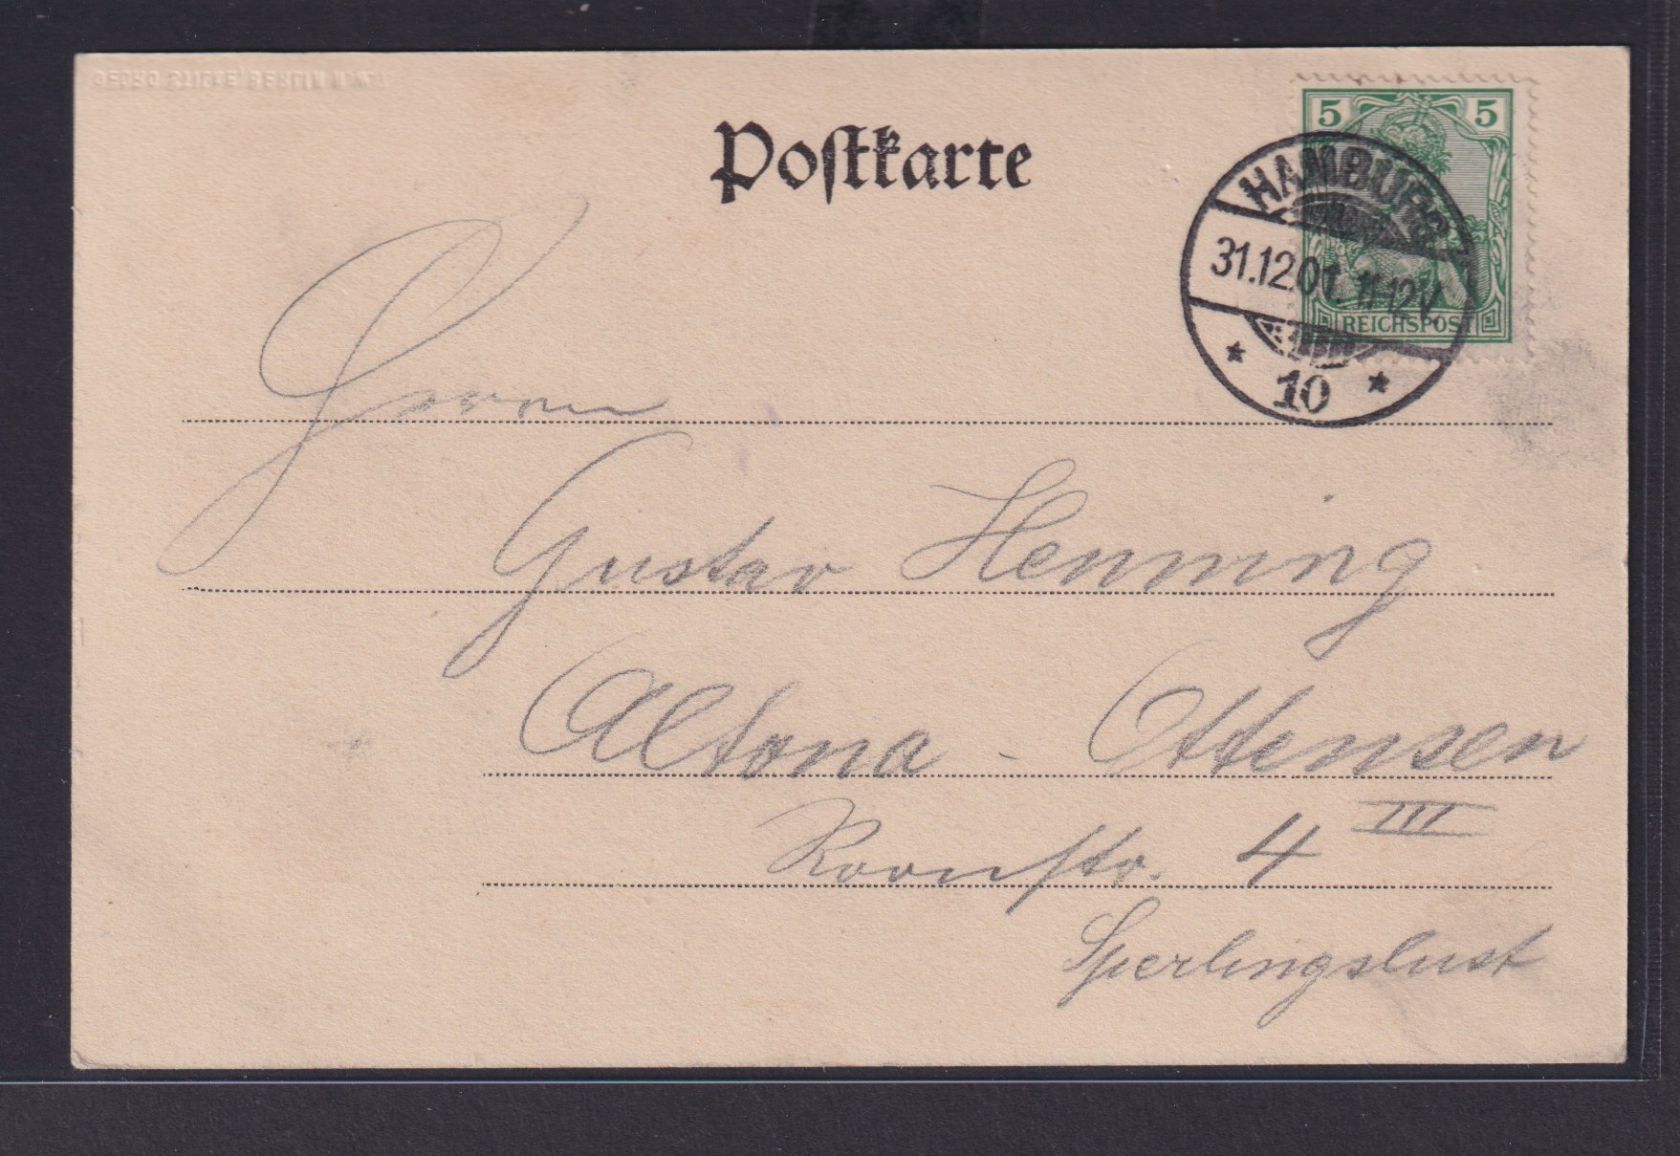 GEORG STILKE, BERLIN N.W.7
Postkarte
5 5
REICHSPOST
HAMBURG
31.12.01. 11-12V.
* 10 *
Herrn
Gustav Henning
Altona - Ottensen
Roonstr. 4 III
Sperlingslust